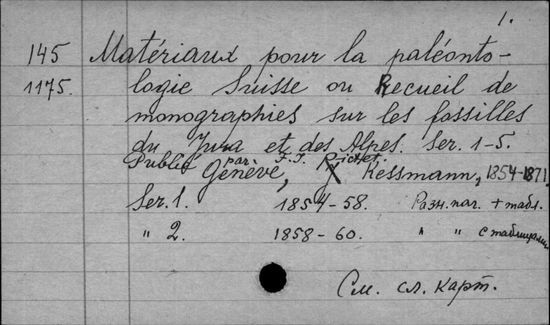 1.
145 Matériaux pour la paléonto-
1175. logie Suisse ou Recueil de
monographies sur les fossiles
du Jura et des Alpes. Ser. 1-5.
Publié par F. J. Pictet.
Genève, J. Kessmann, 1854-1871.
Ser. 1. 1854-58. Разн. паг. + табл.
" 2. 1858-60. " " с таблицами
См. сл. карт.